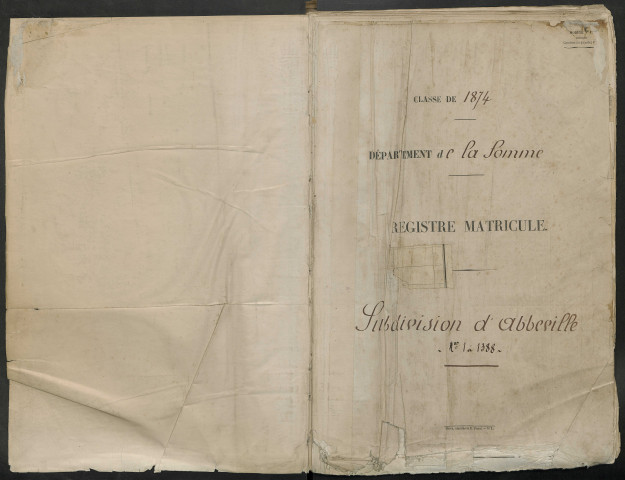 CLASSE DE 1874
DÉPARTMENT de la Somme
REGISTRE MATRICULE.
Subdivision d'Abbeville
- Nos 1 à 1388 -